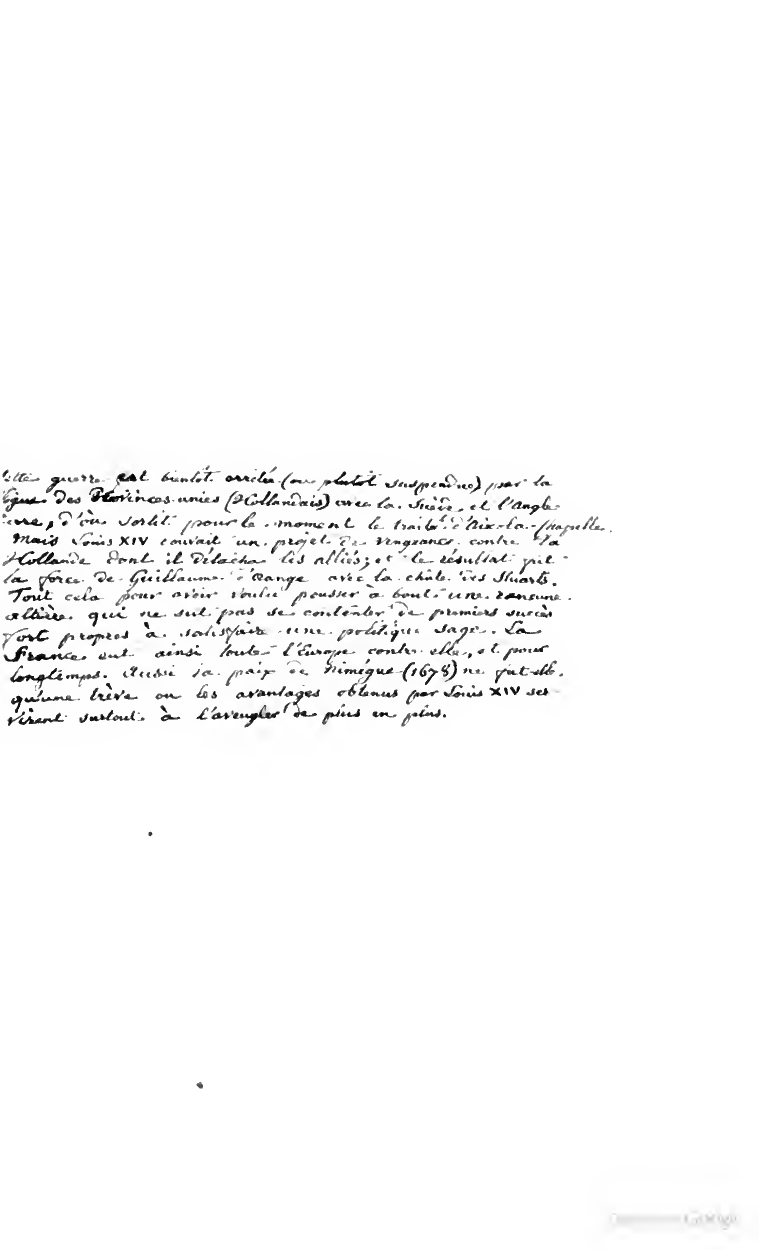 cette guerre est bientôt arrêtée (ou plutôt suspendue) par la
ligue des Provinces-unies (Hollandais) avec la Suède et l'Angle
terre, d'où sortit pour le moment le traité d'Aix-la-Chapelle.
Mais Louis XIV couvait un projet de vengeance contre la
Hollande dont il détacha les alliés; et le résultat fut
la force de Guillaume d'Orange avec la chûte des Stuarts.
Tout cela pour avoir voulu pousser à bout une rancune
altière qui ne sut pas se contenter de premiers succès
fort propres à satisfaire une politique sage. La
France eut ainsi toute l'Europe contre elle, et pour
longtemps. Aussi la paix de Nimègue (1678) ne fut-elle
qu'une trève où les avantages obtenus par Louis XIV ser
virent surtout à l'aveugler de plus en plus.